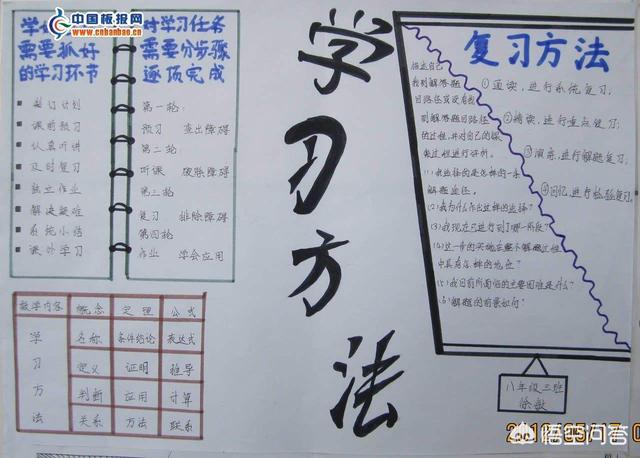 中国板报网
www.cnbanbao.cn
需要抓好
的学习环节
制订计划
课前预习
认真听讲
及时复习
独立作业
解决疑难
系统小结
课外学习
对学习任务
需要分步骤
逐项完成
第一轮:
预习 查出障碍
第二轮:
听课 破除障碍
第三轮
复习 排除障碍
第四轮
作业 学会应用
学习方法
复习方法
①通读,进行系统复习;
②精读,进行重点复习;
③演练,进行解题复习;
④回忆,进行检验复习。
找出自己
的过程,并对自己的探
索过程进行评价。
(1)我选择的是怎样的一条
解题途径。
(2)我为什么作出这样的选择?
(3)我现在已进行到了哪一阶段?
(4)这一步的实施在整个解题过程
中具有怎样的地位?
(5)我目前所面临的主要困难是什么?
(6)解题的前景如何?
数学内容 概念 定理 公式
学 名称 条件结论 表达式
习 定义 证明 推导
方 判断 应用 计算
法 关系 方法 联系
八年级三班
徐敏
悟空问答